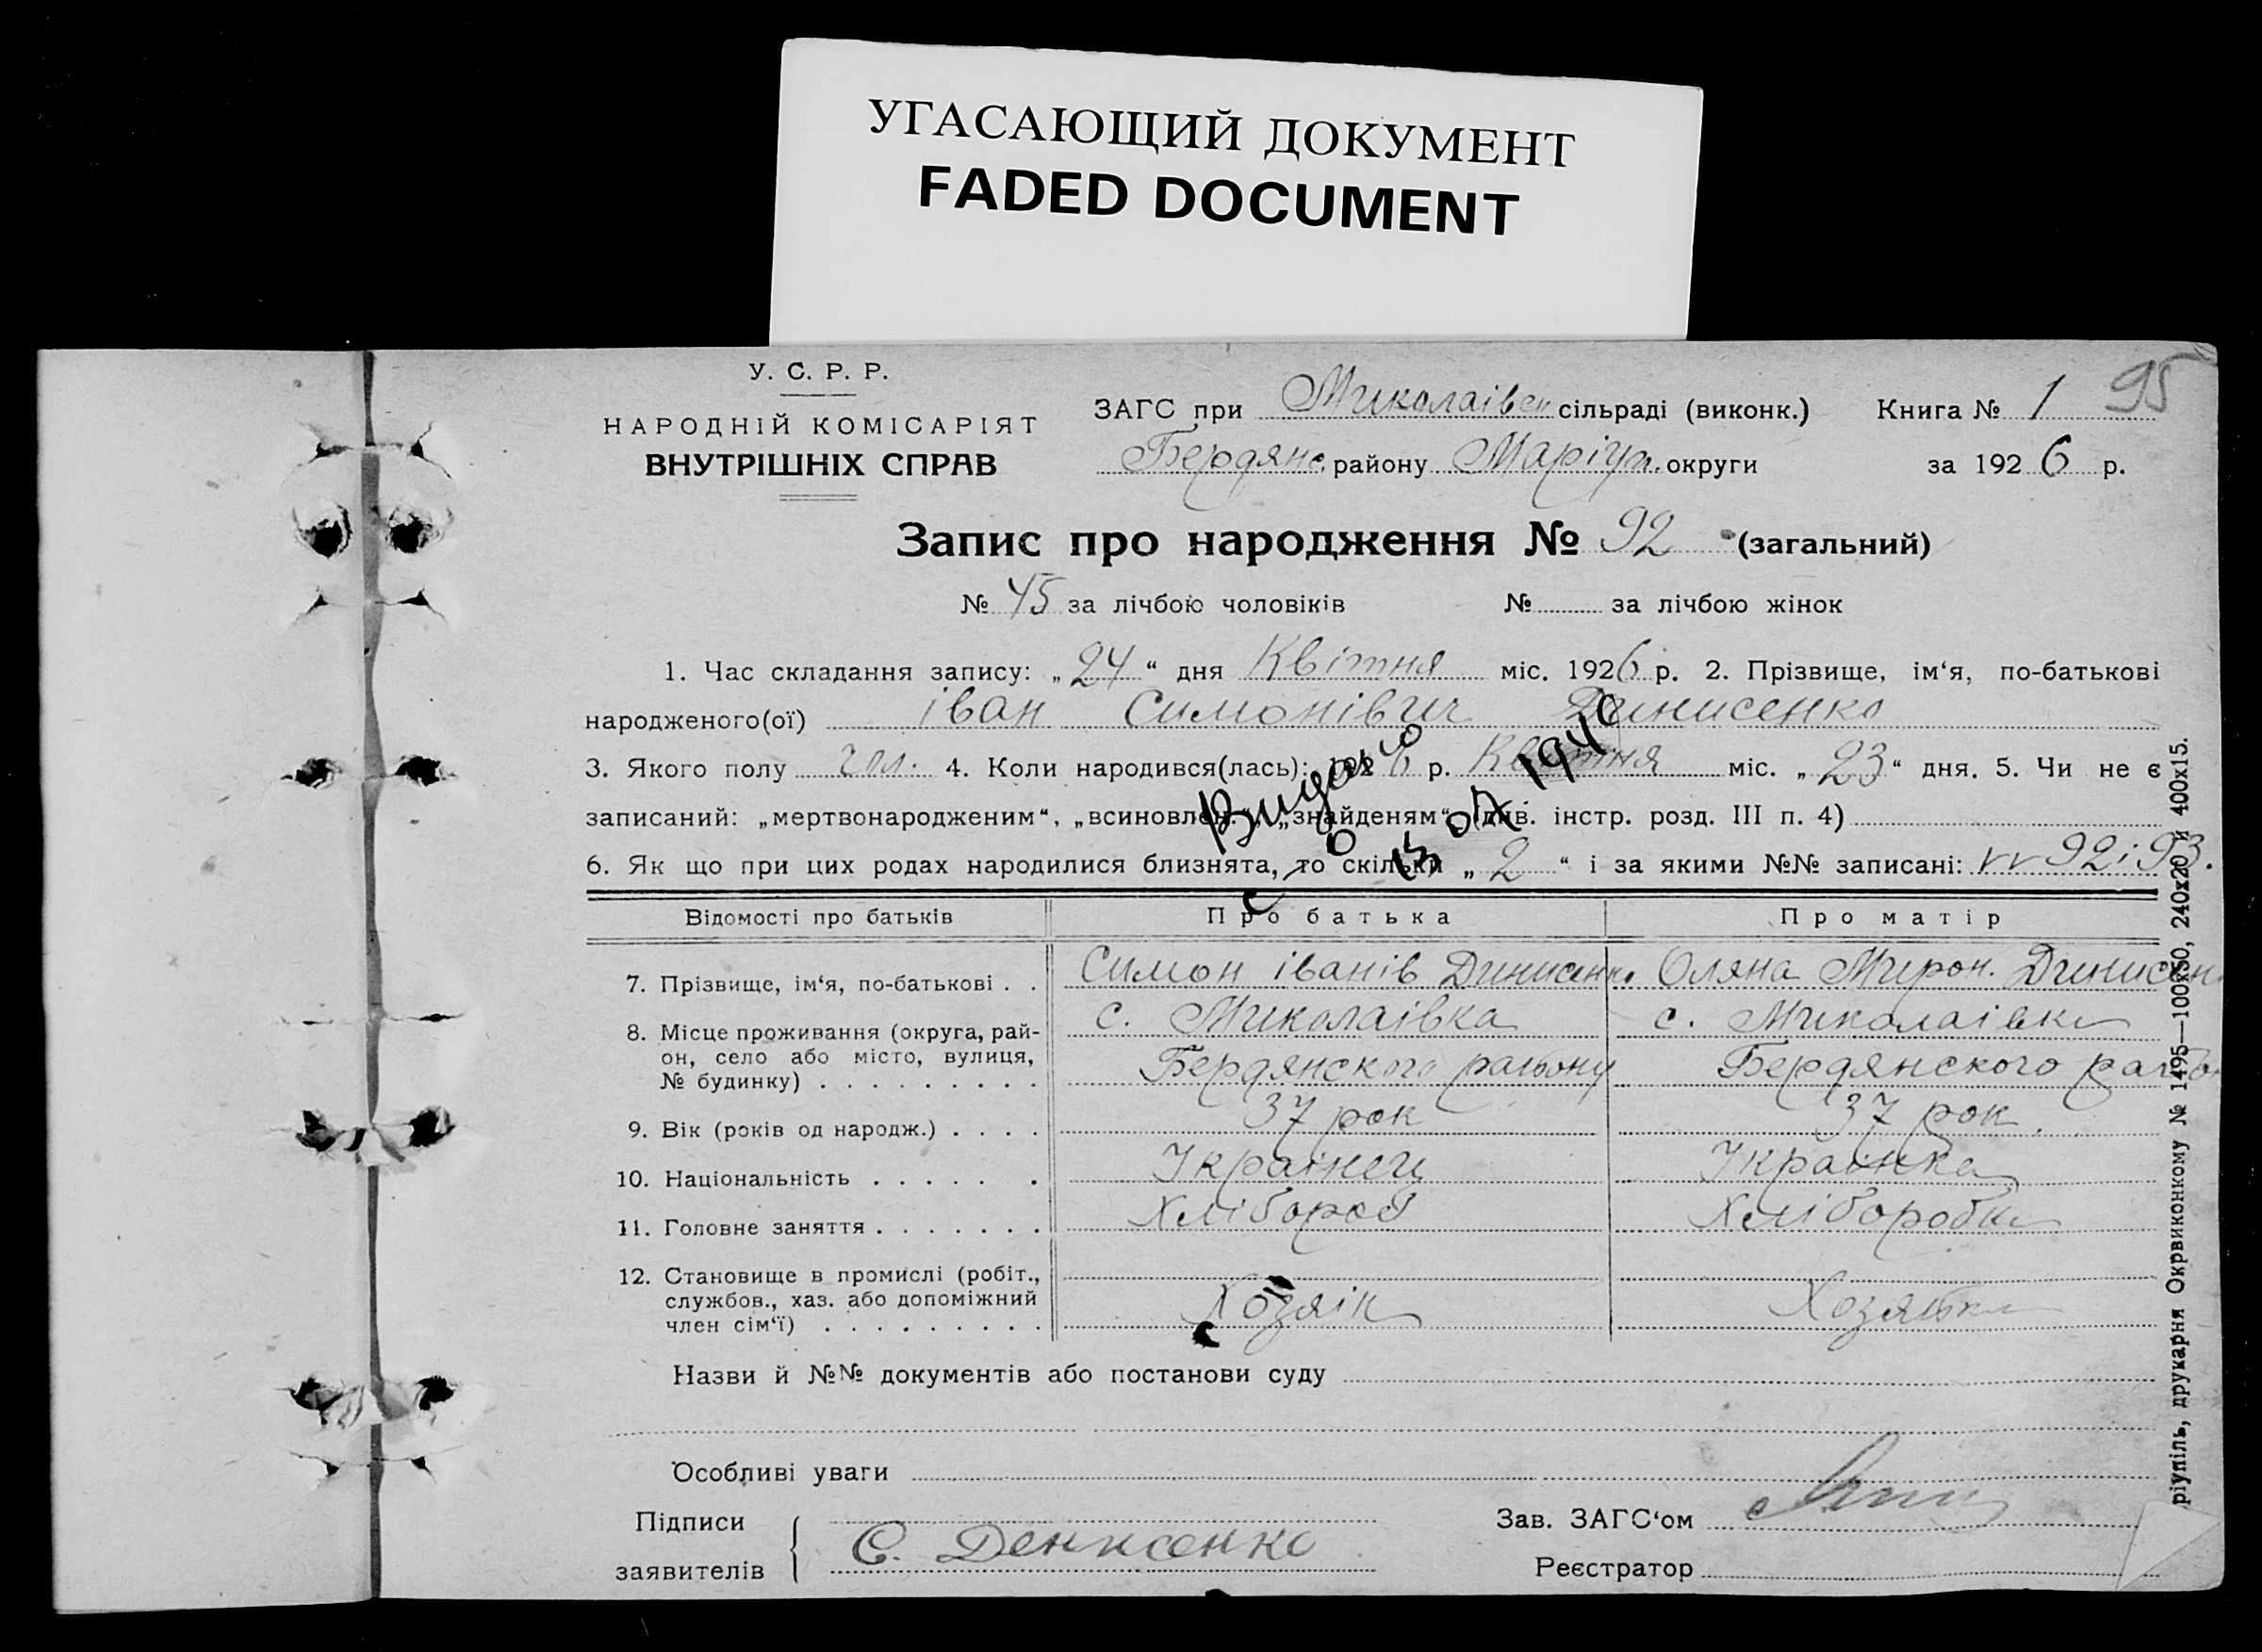 УГАСАЮЩИЙ ДОКУМЕНТ
FADED DOCUMENT
У. С. Р. Р.
НАРОДНІЙ КОМІСАРІЯТ
ВНУТРІШНІХ СПРАВ
ЗАГС при Миколаівск сільраді (виконк.) Книга № 1 95
Бердянс. району Маріуп. округи за 1926 р.
Запис про народження № 92 (загальний)
№ 45 за лічбою чоловіків № за лічбою жінок
1. Час складання запису: „24“ дня Квітня міс. 1926 р. 2. Прізвище, ім‘я, по-батькові
народженого(ої) іван Симонівич Динисенко
3. Якого полу чол. 4. Коли народився(лась): 1926 р. Квітня міс. „23“ дня. 5. Чи не є
записаний: „мертвонародженим“, „всиновлен.“, „знайденям“ (див. інстр. розд. III п. 4)
6. Як що при цих родах народилися близнята, то скільки „2“ і за якими №№ записані: 92 і 93.
Видано
Відомості про батьків Про батька Про матір
7. Прізвище, ім‘я, по-батькові . . Симон іванів Динисенко Оляна Мирон. Динисен
8. Місце проживання (округа, рай-
он, село або місто, вулиця,
№ будинку) . . . . . . . . .
с. Миколаівка с. Миколаівка
Бердянского району Бердянского району
9. Вік (років од народж.) . . . . 37 рок 37 рок.
10. Національність . . . . . . Українец Українка
11. Головне заняття . . . . . . . Хлібороб Хлiборобка
12. Становище в промислі (робіт.,
службов., хаз. або допоміжний
член сім‘ї) . . . . . . . . .
Хозяїн Хозяйка
Назви й №№ документів або постанови суду
Особливі уваги
Підписи
заявителів
С. Денисенко
Зав. ЗАГС‘ом
Реєстратор
ріупіль, друкарня Окрвиконкому № 1495—100х50, 240х20 й 400х15.